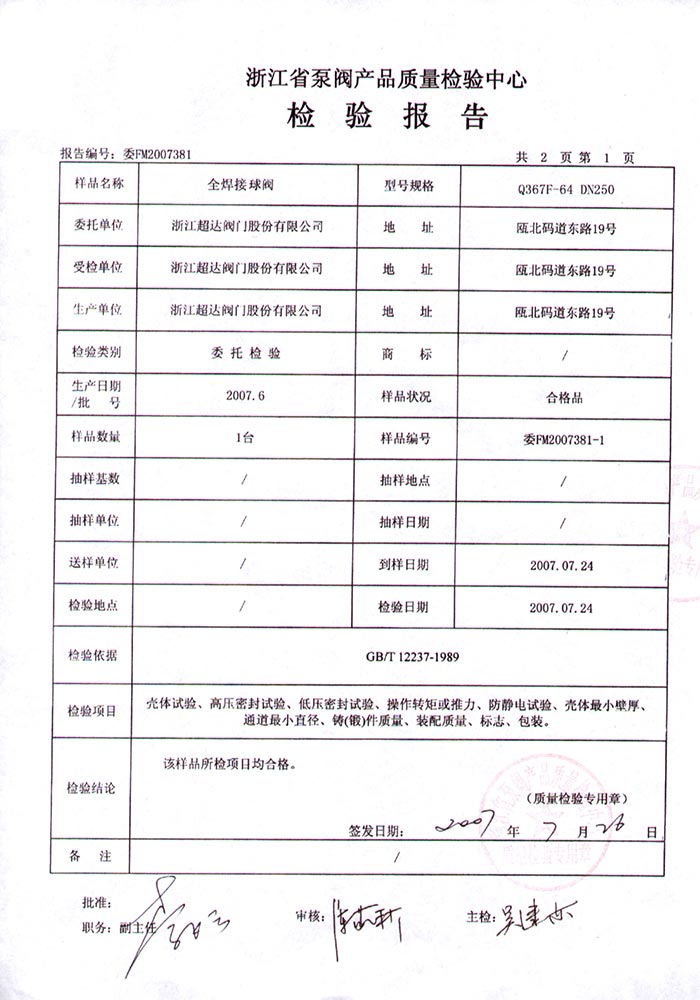 浙江省泵阀产品质量检验中心
检 验 报 告
报告编号：委FM2007381 共 2 页 第 1 页
样品名称 全焊接球阀 型号规格 Q367F-64 DN250
委托单位 浙江超达阀门股份有限公司 地 址 瓯北码道东路19号
受检单位 浙江超达阀门股份有限公司 地 址 瓯北码道东路19号
生产单位 浙江超达阀门股份有限公司 地 址 瓯北码道东路19号
检验类别 委 托 检 验 商 标 /
生产日期
/批 号 2007.6 样品状况 合格品
样品数量 1台 样品编号 委FM2007381-1
抽样基数 / 抽样地点 /
抽样单位 / 抽样日期 /
送样单位 / 到样日期 2007.07.24
检验地点 / 检验日期 2007.07.24
检验依据 GB/T 12237-1989
检验项目 壳体试验、高压密封试验、低压密封试验、操作转矩或推力、防静电试验、壳体最小壁厚、
通道最小直径、铸(锻)件质量、装配质量、标志、包装。
检验结论 该样品所检项目均合格。
（质量检验专用章）
签发日期： 2007 年 7 月 26 日
备 注 /
批准：
职务：副主任 审核： 主检：